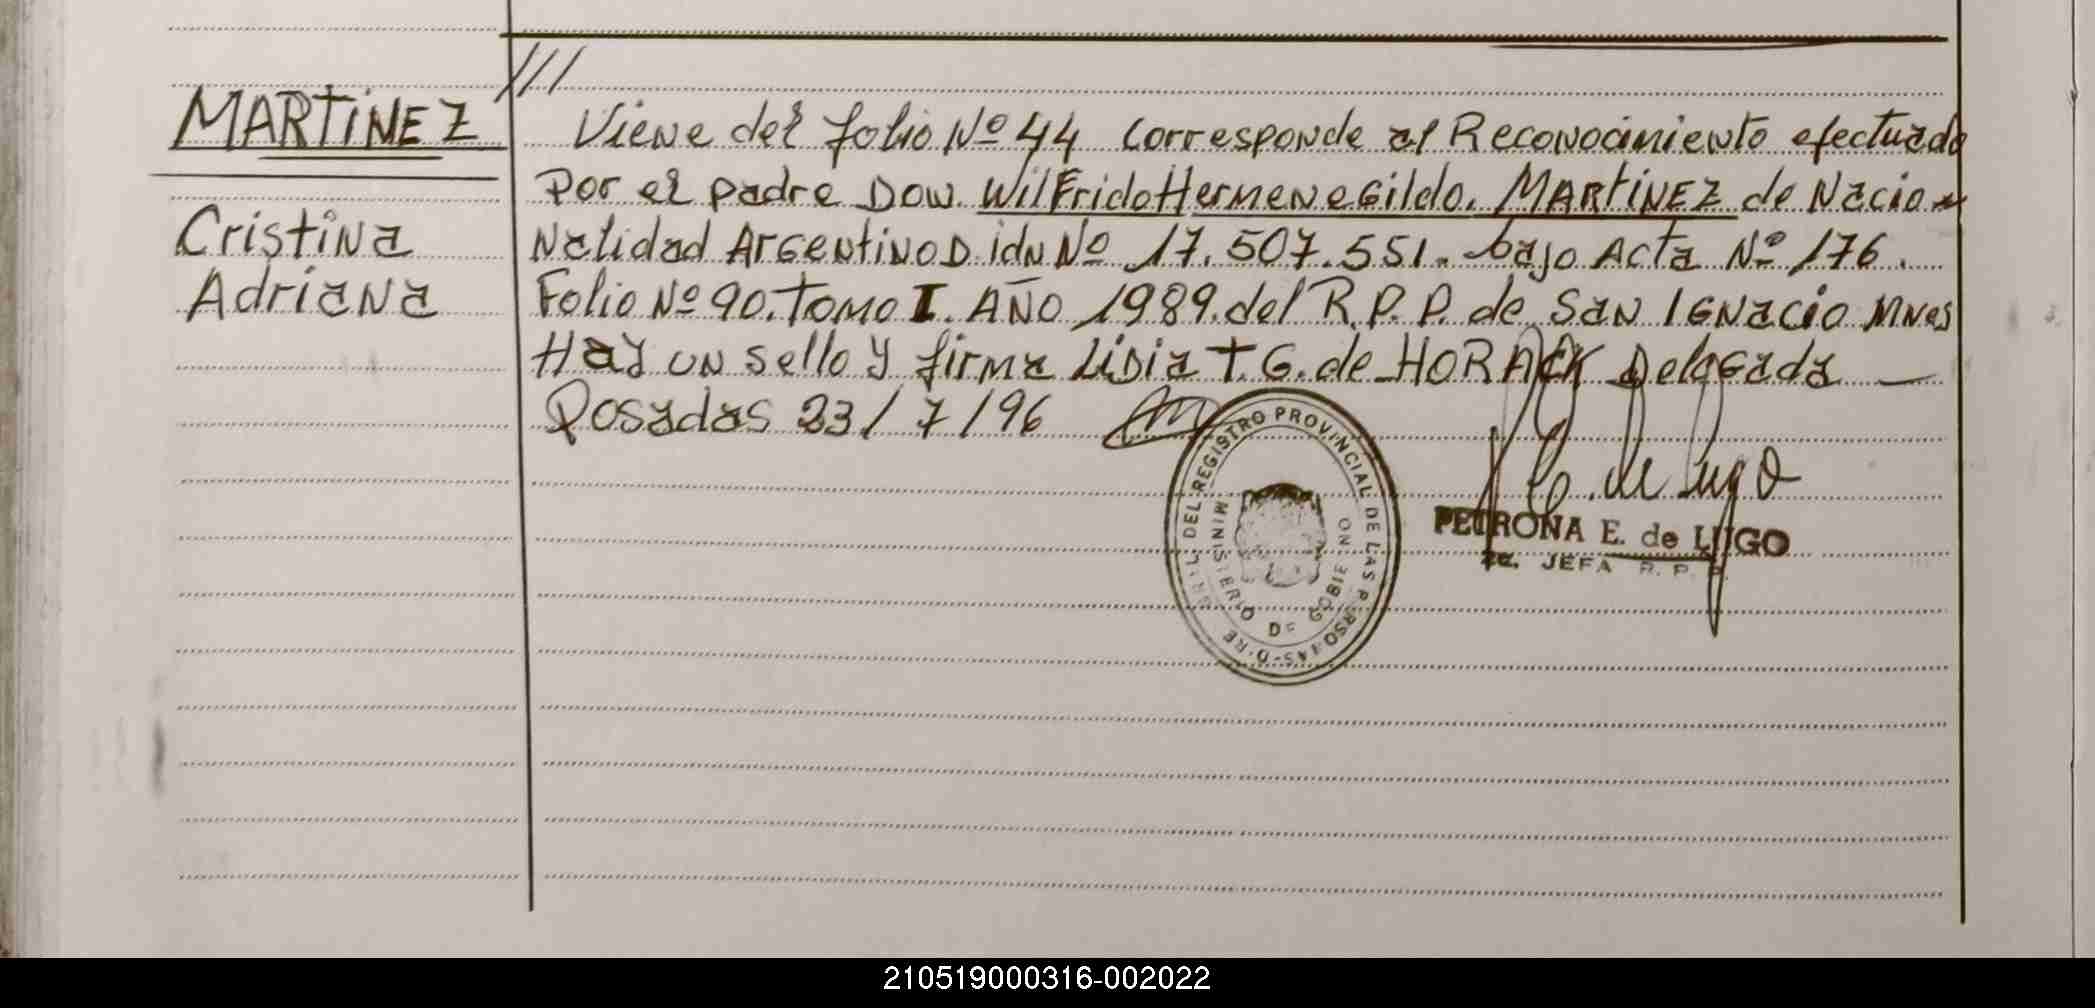 ///
MARTINEZ
Cristina
Adriana
Viene del folio Nº 44 Corresponde al Reconocimiento efectuado
Por el padre Don. WilFrido HermeneGildo. MARTINEZ de Nacio
Nalidad Argentino D.idn Nº 17.507.551. bajo Acta Nº 176.
Folio Nº 90. Tomo I. AÑO 1989. del R.P.P. de SAN IGNACIO Mnes
Hay un sello y firma Lidia T.G. de HORACK Delegada
Posadas 23/7/96
DEL REGISTRO PROVINCIAL DE LAS PERSONAS
MINISTERIO DE GOBIERNO
PETRONA E. de LUGO
2a. JEFA R.P.P.
210519000316-002022